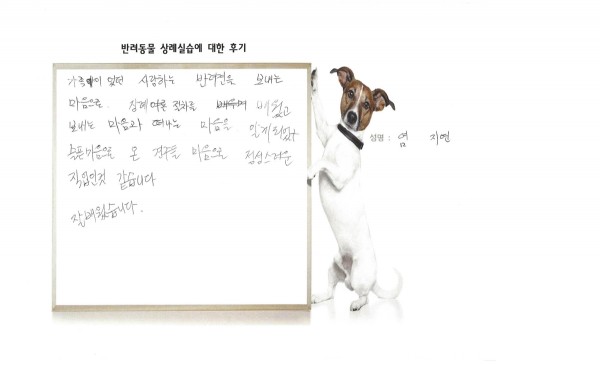 반려동물 상례실습에 대한 후기
가족이 었던 사랑하는 반려견을 보내는
마음으로. 장례 여른 절차를 배우며 배웠고
보내는 마음과 떠나는 마음을 알게되었다
슬픈마음으로 온 가족들 마음으로 정성스러운
직업인것 같습니다
잘배웠습니다.
성명 : 염 지연